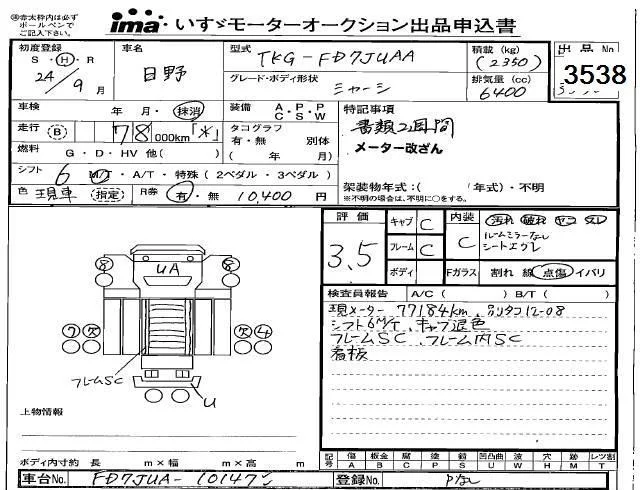 ㊟赤太枠内は必ず
ボールペンで
ご記入下さい。
ima・いすゞモーターオークション出品申込書
初度登録
S・H・R
24/9月
車名
日野
型式
TKG-FD7JUAA
積載(kg)
(2350)
出品No
3538
グレード・ボディ形状
ミャーシ
排気量(cc)
6400
車検
年 月・抹消
装備
A・P・P
C・S・W
特記事項
書類2週間
メーター改ざん
走行(B)
78,000km「*」
タコグラフ
有・無 別体
(年 月)
燃料
G・D・HV 他( )
シフト
6 M/T・A/T・特殊(2ペダル・3ペダル)
架装物年式:( 年式)・不明
※不明の場合は、不明に○をする。
色
現車
(指定)
R券
有・無 10,400円
評価
3.5
キャブ C
フレーム C
ボディ
内装
C
汚れ 破れ ヤニ スレ
ルームミラーなし
Fガラス
割れ 線 点傷 イバリ
8
8
UA
7
欠
欠
4
フレームSC
U
検査員報告
A/C( ) B/T( )
現メーター 77184km
12-08
シフト6M/T、キャブ退色
フレームSC、フレーム内SC
看板
上物情報
ボディ内寸約 長 m×幅 m×高 m
記号
傷 板金 腐 塗 錆 凹凸曲 波 穴 跡 レツ割
A B C P S U W H M T
車台No.
FD7JUA-
登録No.
Pなし